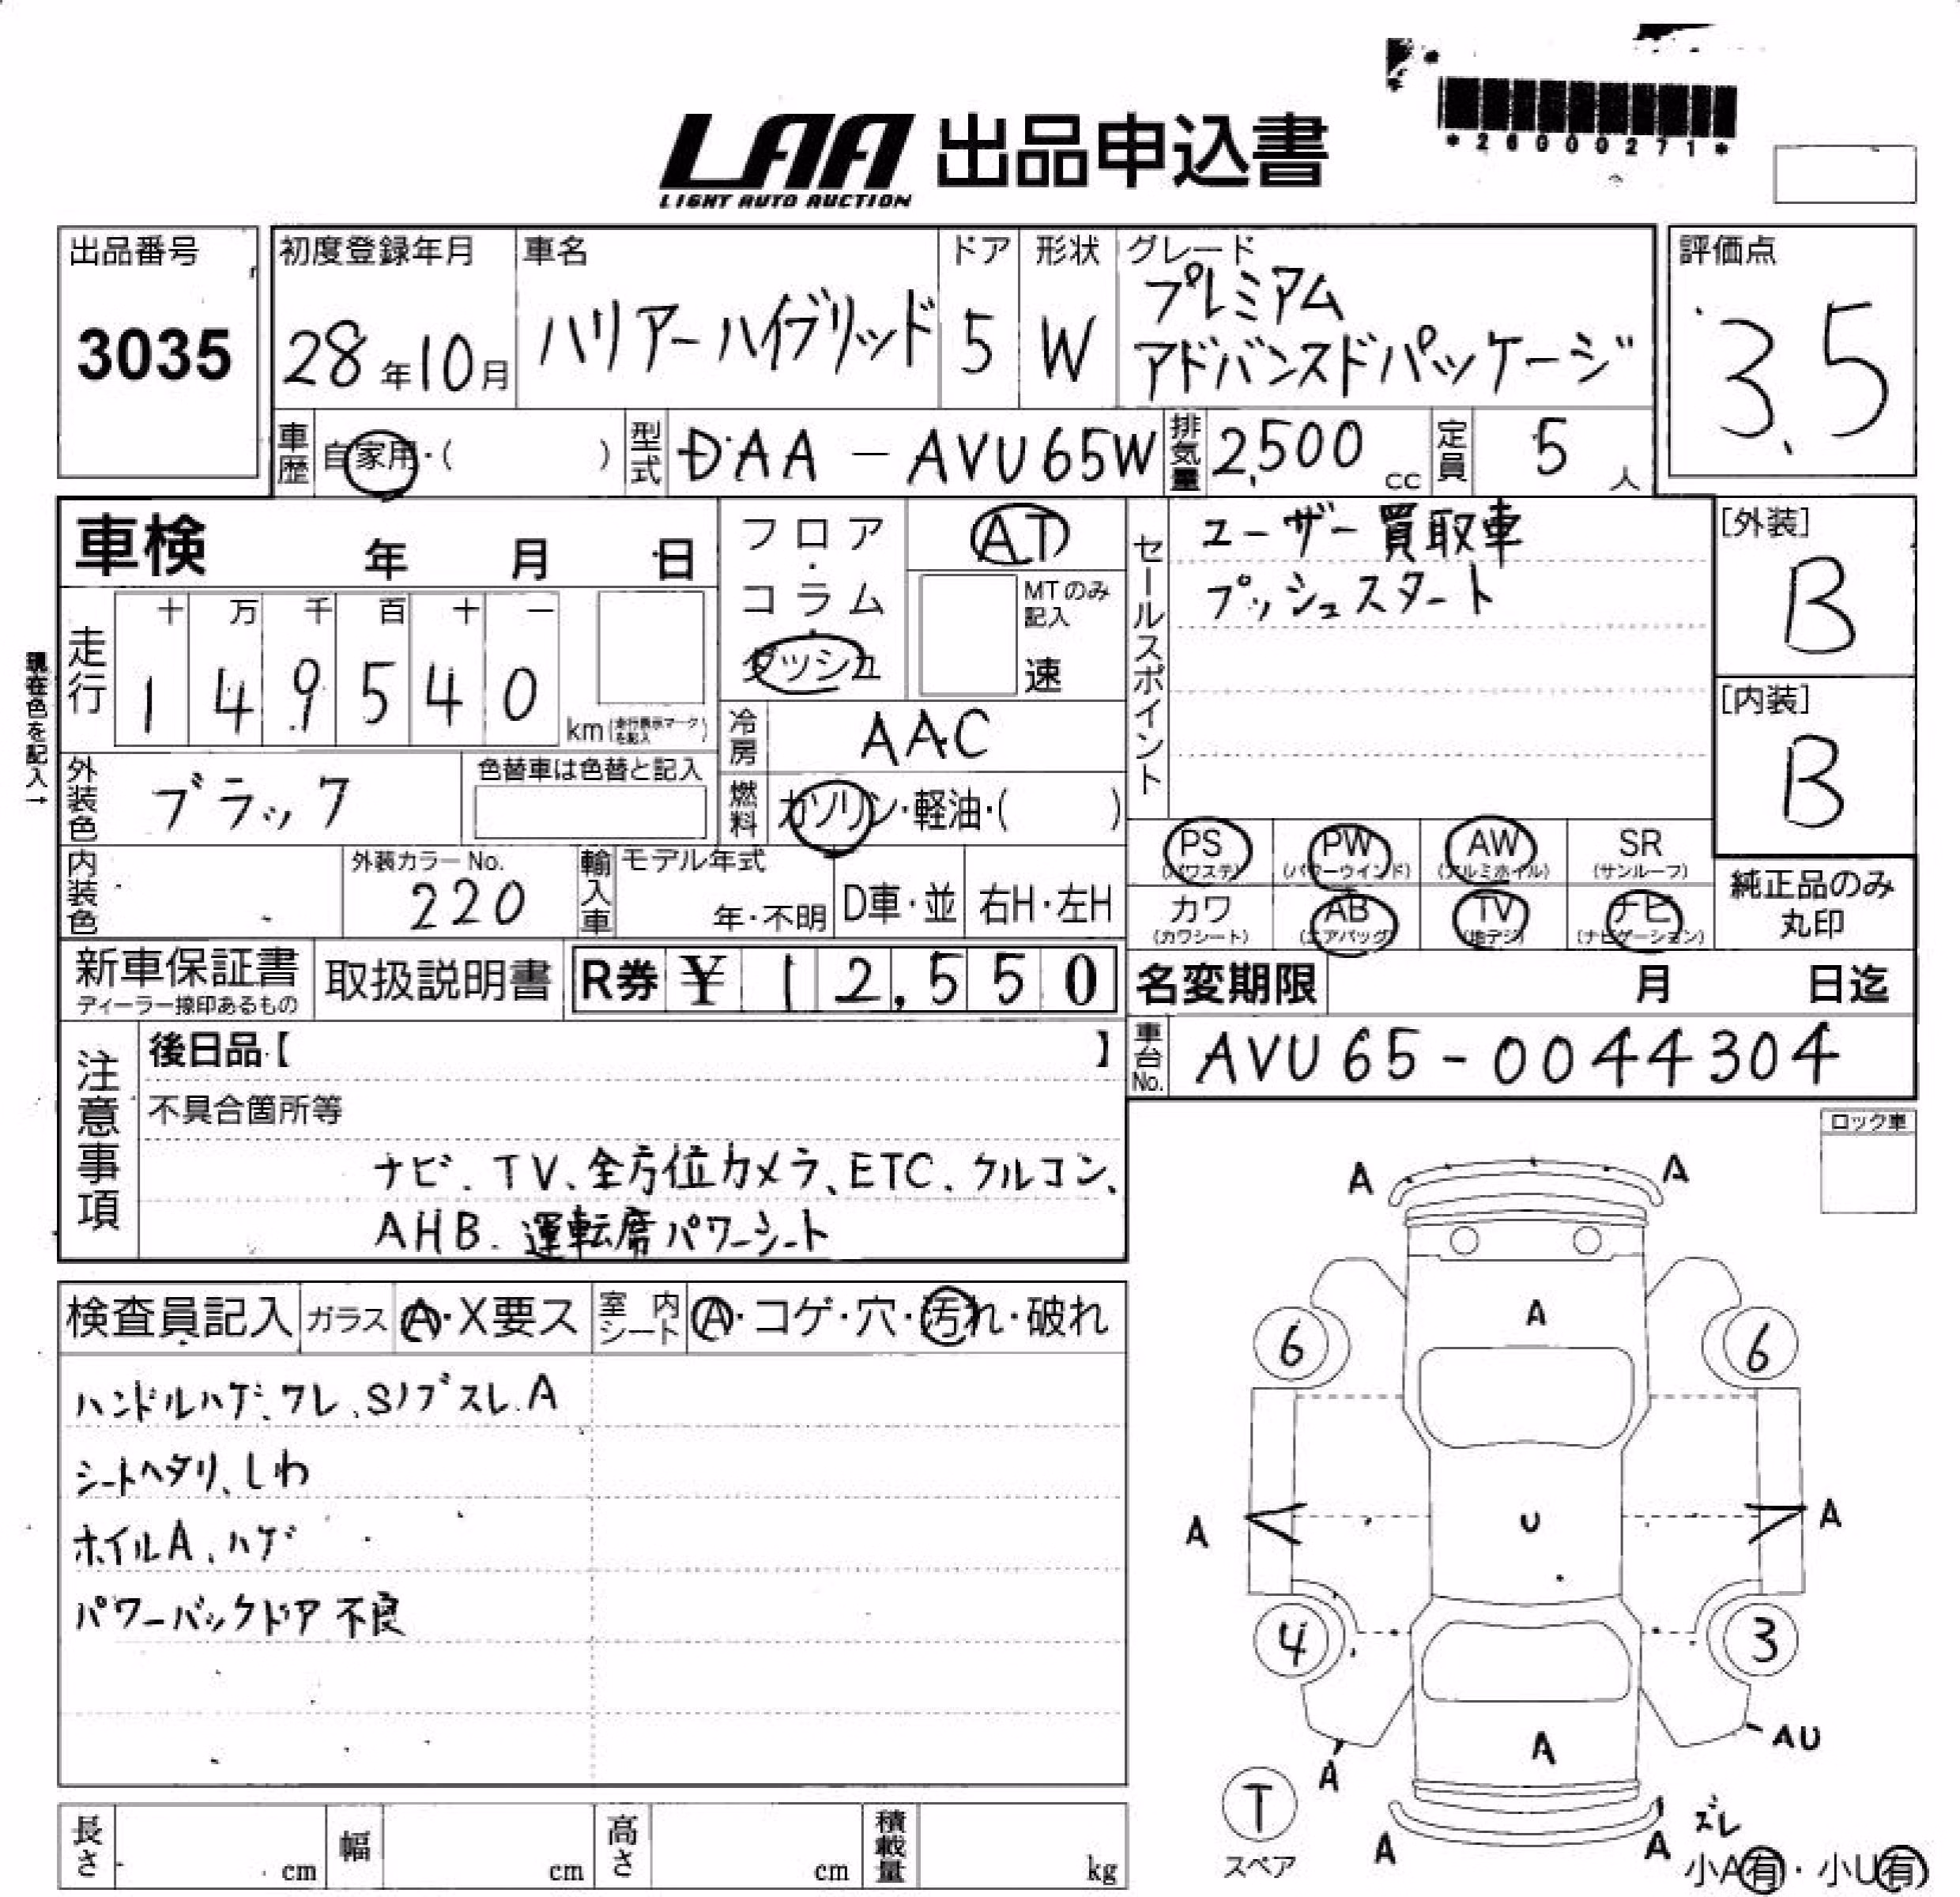 LAA 出品申込書
LIGHT AUTO AUCTION
*26000271*
出品番号
3035
初度登録年月
28年10月
車名
ハリアーハイブリッド
ドア
5
形状
W
グレード
プレミアム
アドバンスドパッケージ
評価点
3.5
車歴
自家用・( )
型式
DAA-AVU65W
排気量
2,500 cc
定員
5 人
車検 年 月 日
フロア・コラム・ダッシュ
AT
MTのみ記入
速
現在色を記入→
走行
十 万 千 百 十 一
1 4 9 5 4 0
km(走行表示マークを記入)
冷房
AAC
外装色
ブラック
色替車は色替と記入
燃料
ガソリン・軽油・( )
内装色
外装カラーNo.
220
輸入車
モデル年式
年・不明
D車・並
右H・左H
セールスポイント
ユーザー買取車
プッシュスタート
[外装]
B
[内装]
B
PS (パワステ)
PW (パワーウインド)
AW (アルミホイル)
SR (サンルーフ)
カワ (カワシート)
AB (エアバッグ)
TV (地デジ)
ナビ (ナビゲーション)
純正品のみ
丸印
新車保証書
ディーラー捺印あるもの
取扱説明書
R券 ¥ 12,550
名変期限 月 日迄
車台No.
AVU65-0044304
注意事項
後日品【 】
不具合箇所等
ナビ、TV、全方位カメラ、ETC、クルコン、
AHB、運転席パワーシート
ロック車
検査員記入
ガラス
A・X要ス
室内シート
A・コゲ・穴・汚れ・破れ
ハンドルハゲ、ワレ、Sノブスレ、A
シートヘタリ、しわ
ホイルA、ハゲ
パワーバックドア不良
A
A
A
6
6
A
U
A
4
3
A
A
AU
T
スペア
A
A
ズレ
小A有・小U有)
長さ cm
幅 cm
高さ cm
積載量 kg